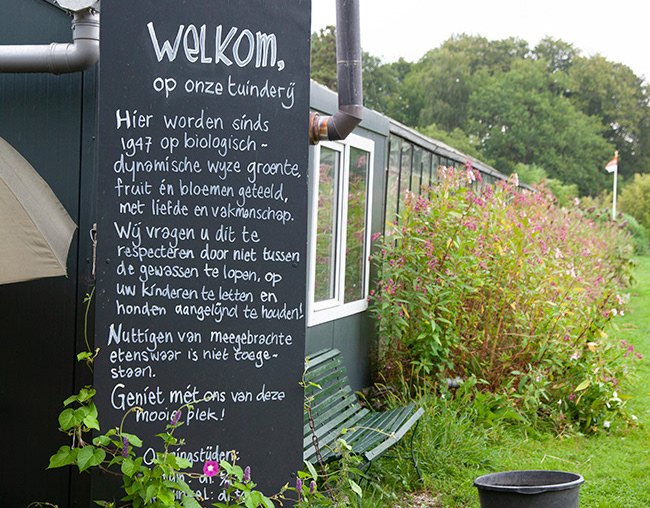 WELKOM,
op onze tuinderij
Hier worden sinds
1947 op biologisch-
dynamische wyze groente,
fruit én bloemen geteeld,
met liefde en vakmanschap.
Wij vragen u dit te
respecteren door niet tussen
de gewassen te lopen, op
uw kinderen te letten en
honden aangelijnd te houden!
Nuttigen van meegebrachte
etenswaar is niet toege-
staan.
Geniet mét ons van deze
mooie plek!
Openingstijden: